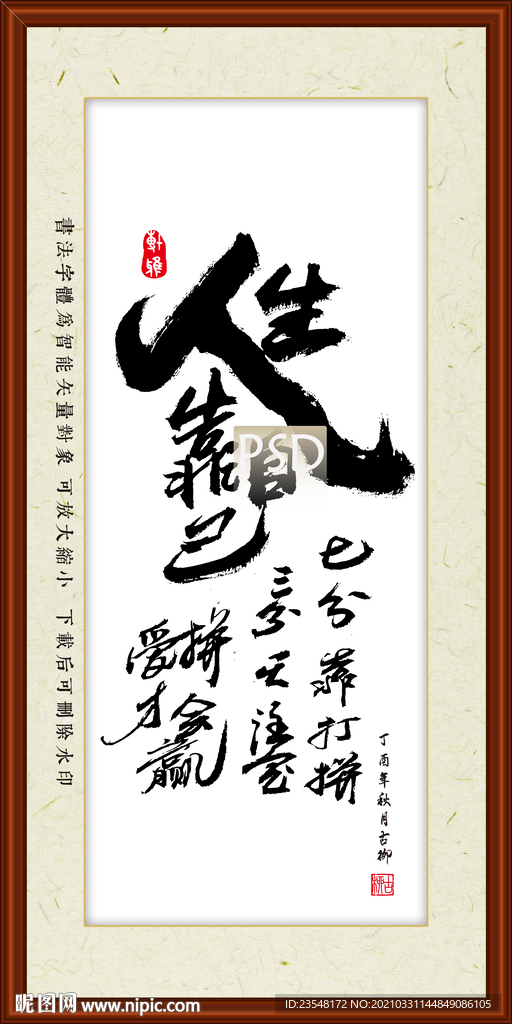 軒雅
人生
靠自己
七分靠打拼
三分天注定
爱拼
才会赢
丁酉年秋月古柳
古柳
書法字體為智能矢量對象 可放大縮小 下載后可刪除水印
PSD
昵图网 www.nipic.com
ID:23548172 NO:20210331144849086105